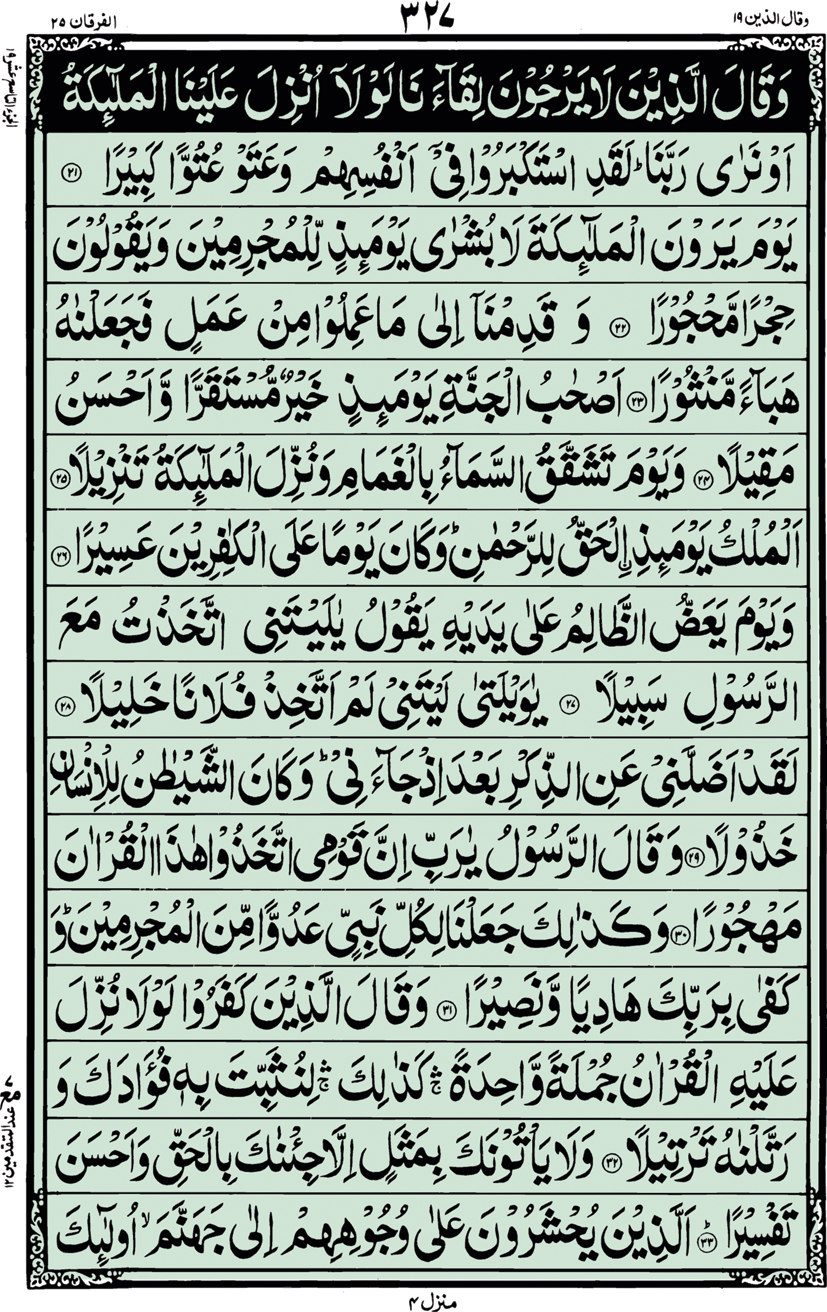 وقال الذين ۱۹
۳۲۷
الفرقان ۲۵
وَقَالَ الَّذِیْنَ لَا یَرْجُوْنَ لِقَآءَ نَا لَوْلَاۤ اُنْزِلَ عَلَیْنَا الْمَلٰٓئِكَةُ
اَوْ نَرٰی رَبَّنَا ؕ لَقَدِ اسْتَكْبَرُوْا فِیْۤ اَنْفُسِهِمْ وَعَتَوْ عُتُوًّا كَبِیْرًا ۲۱
یَوْمَ یَرَوْنَ الْمَلٰٓئِكَةَ لَا بُشْرٰی یَوْمَئِذٍ لِّلْمُجْرِمِیْنَ وَیَقُوْلُوْنَ
حِجْرًا مَّحْجُوْرًا ۲۲ وَ قَدِمْنَاۤ اِلٰی مَا عَمِلُوْا مِنْ عَمَلٍ فَجَعَلْنٰهُ
هَبَآءً مَّنْثُوْرًا ۲۳ اَصْحٰبُ الْجَنَّةِ یَوْمَئِذٍ خَیْرٌ مُّسْتَقَرًّا وَّ اَحْسَنُ
مَقِیْلًا ۲۴ وَیَوْمَ تَشَقَّقُ السَّمَآءُ بِالْغَمَامِ وَنُزِّلَ الْمَلٰٓئِكَةُ تَنْزِیْلًا ۲۵
اَلْمُلْكُ یَوْمَئِذِ ِۨالْحَقُّ لِلرَّحْمٰنِ ؕ وَكَانَ یَوْمًا عَلَی الْكٰفِرِیْنَ عَسِیْرًا ۲۶
وَیَوْمَ یَعَضُّ الظَّالِمُ عَلٰی یَدَیْهِ یَقُوْلُ یٰلَیْتَنِی اتَّخَذْتُ مَعَ
الرَّسُوْلِ سَبِیْلًا ۲۷ یٰوَیْلَتٰی لَیْتَنِیْ لَمْ اَتَّخِذْ فُلَانًا خَلِیْلًا ۲۸
لَقَدْ اَضَلَّنِیْ عَنِ الذِّكْرِ بَعْدَ اِذْ جَآءَ نِیْ ؕ وَكَانَ الشَّیْطٰنُ لِلْاِنْسَانِ
خَذُوْلًا ۲۹ وَ قَالَ الرَّسُوْلُ یٰرَبِّ اِنَّ قَوْمِی اتَّخَذُوْا هٰذَا الْقُرْاٰنَ
مَهْجُوْرًا ۳۰ وَ كَذٰلِكَ جَعَلْنَا لِكُلِّ نَبِیٍّ عَدُوًّا مِّنَ الْمُجْرِمِیْنَ ؕ وَ
كَفٰی بِرَبِّكَ هَادِیًا وَّ نَصِیْرًا ۳۱ وَقَالَ الَّذِیْنَ كَفَرُوْا لَوْلَا نُزِّلَ
عَلَیْهِ الْقُرْاٰنُ جُمْلَةً وَّاحِدَةً ۛۚ كَذٰلِكَ ۛۚ لِنُثَبِّتَ بِهٖ فُؤَادَكَ وَ
رَتَّلْنٰهُ تَرْتِیْلًا ۳۲ وَلَا یَاْتُوْنَكَ بِمَثَلٍ اِلَّا جِئْنٰكَ بِالْحَقِّ وَ اَحْسَنَ
تَفْسِیْرًا ؕ ۳۳ اَلَّذِیْنَ یُحْشَرُوْنَ عَلٰی وُجُوْهِهِمْ اِلٰی جَهَنَّمَ ۙ اُولٰٓئِكَ
مع
عند المتقدمین ۱۲
منزل ۴